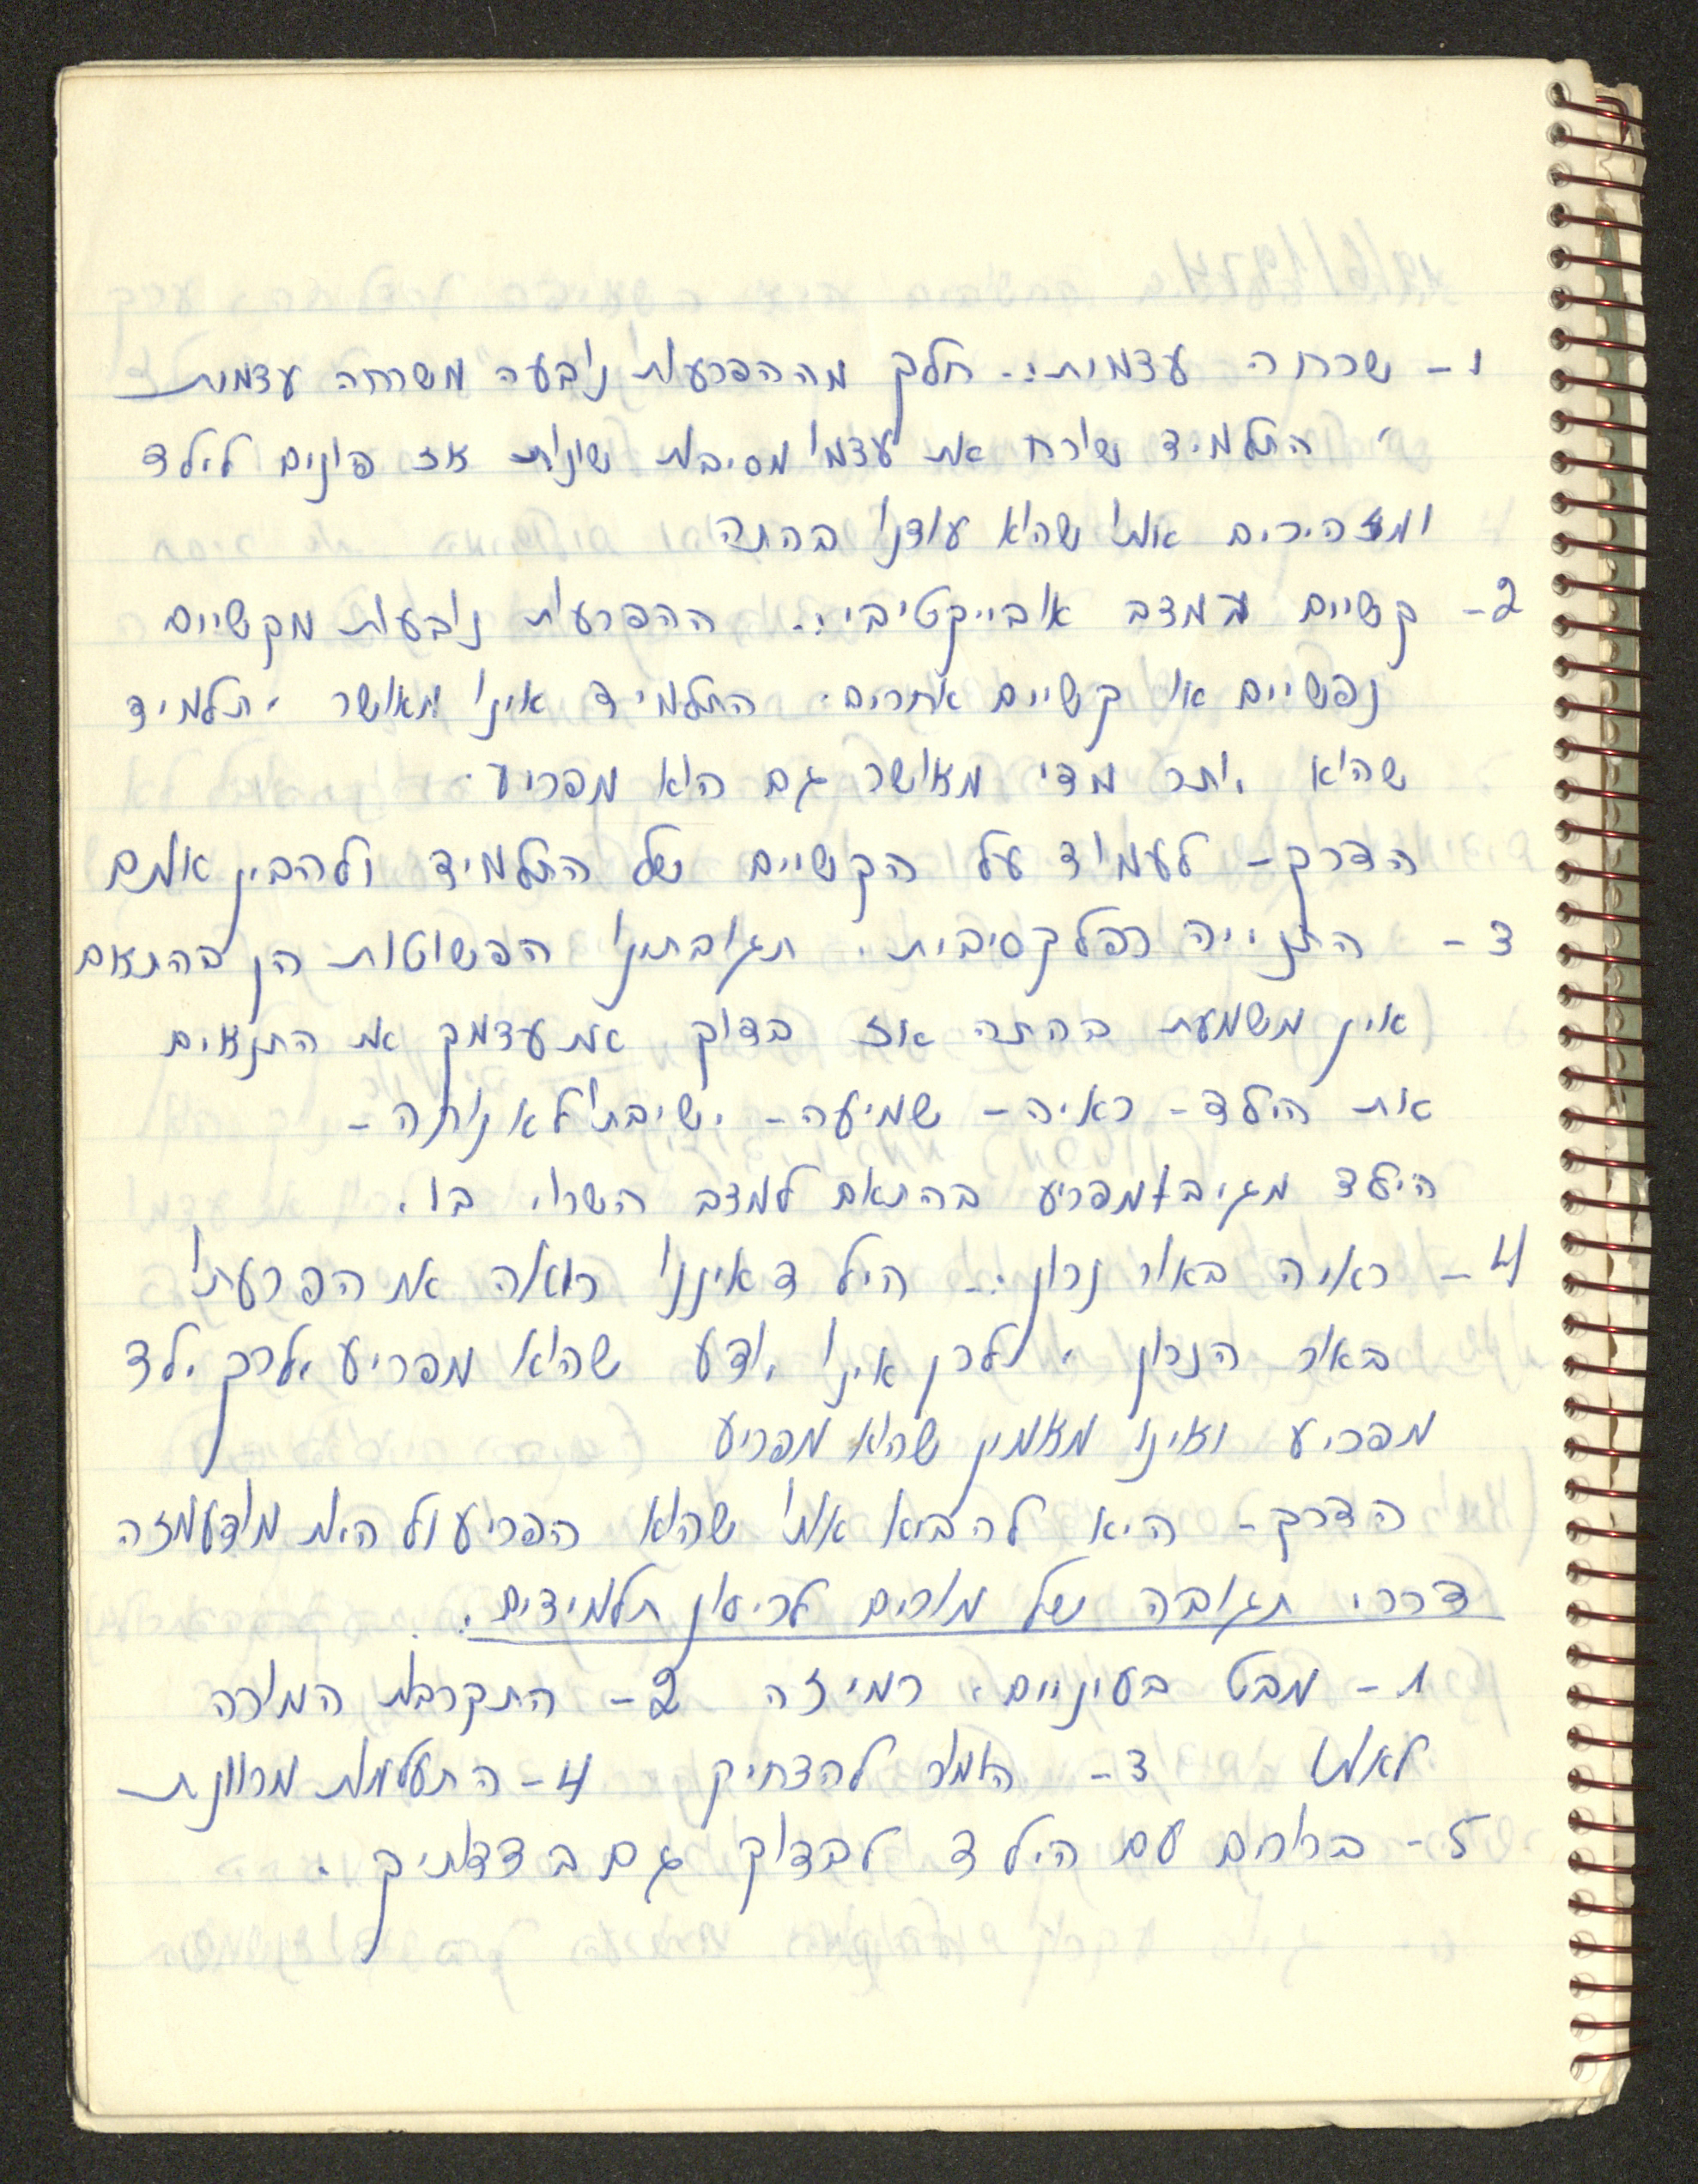 1- שכחה עצמית:. חלק מההפרעות נובעה משכחה עצמית
, התלמיד שוכח את עצמו מסיבות שונות אז פונים לילד
ומזהירים אותו שהוא עודנו בכתה
2- קשיים במצב אובייקטיבי:. ההפרעות נובעות מקשיים
נפשיים או קשיים אחרים. התלמיד אינו מאושר , תלמיד
שהוא יותר מדי מאושר גם הוא מפריע.
הדרך - לעמוד על הקשיים של התלמיד ולהבין אותם
3 - התנייה רפלקסיבית. תגובותינו הפשוטות הן בהתאם
אין משמעת בכתה אז בדוק את עצמך את התנאים
את הילד - ראיה - שמיעה - ישיבתו לא נוחה -
הילד מגיב ומפריע בהתאם למצב השרוי בו.
4 - ראיה באור נכון :- הילד איננו רואה את הפרעתו
באור הנכון , לכן אינו יודע שהוא מפריע, לכן ילד
מפריע ואינו מאמין שהוא מפריע
הדרך - היא להביא אותו שהוא הפריע ולהיות מודע מזה
דרכי תגובה של מורים לריסון תלמידים.
1 - מבט בעיניים, רמיזה 2 - התקרבות המורה
לאותו 3 - הומור להצחיק 4 - התעלמות מכוונת
5 - בכוחם עם הילד לבדוק גם בצדדתיך .